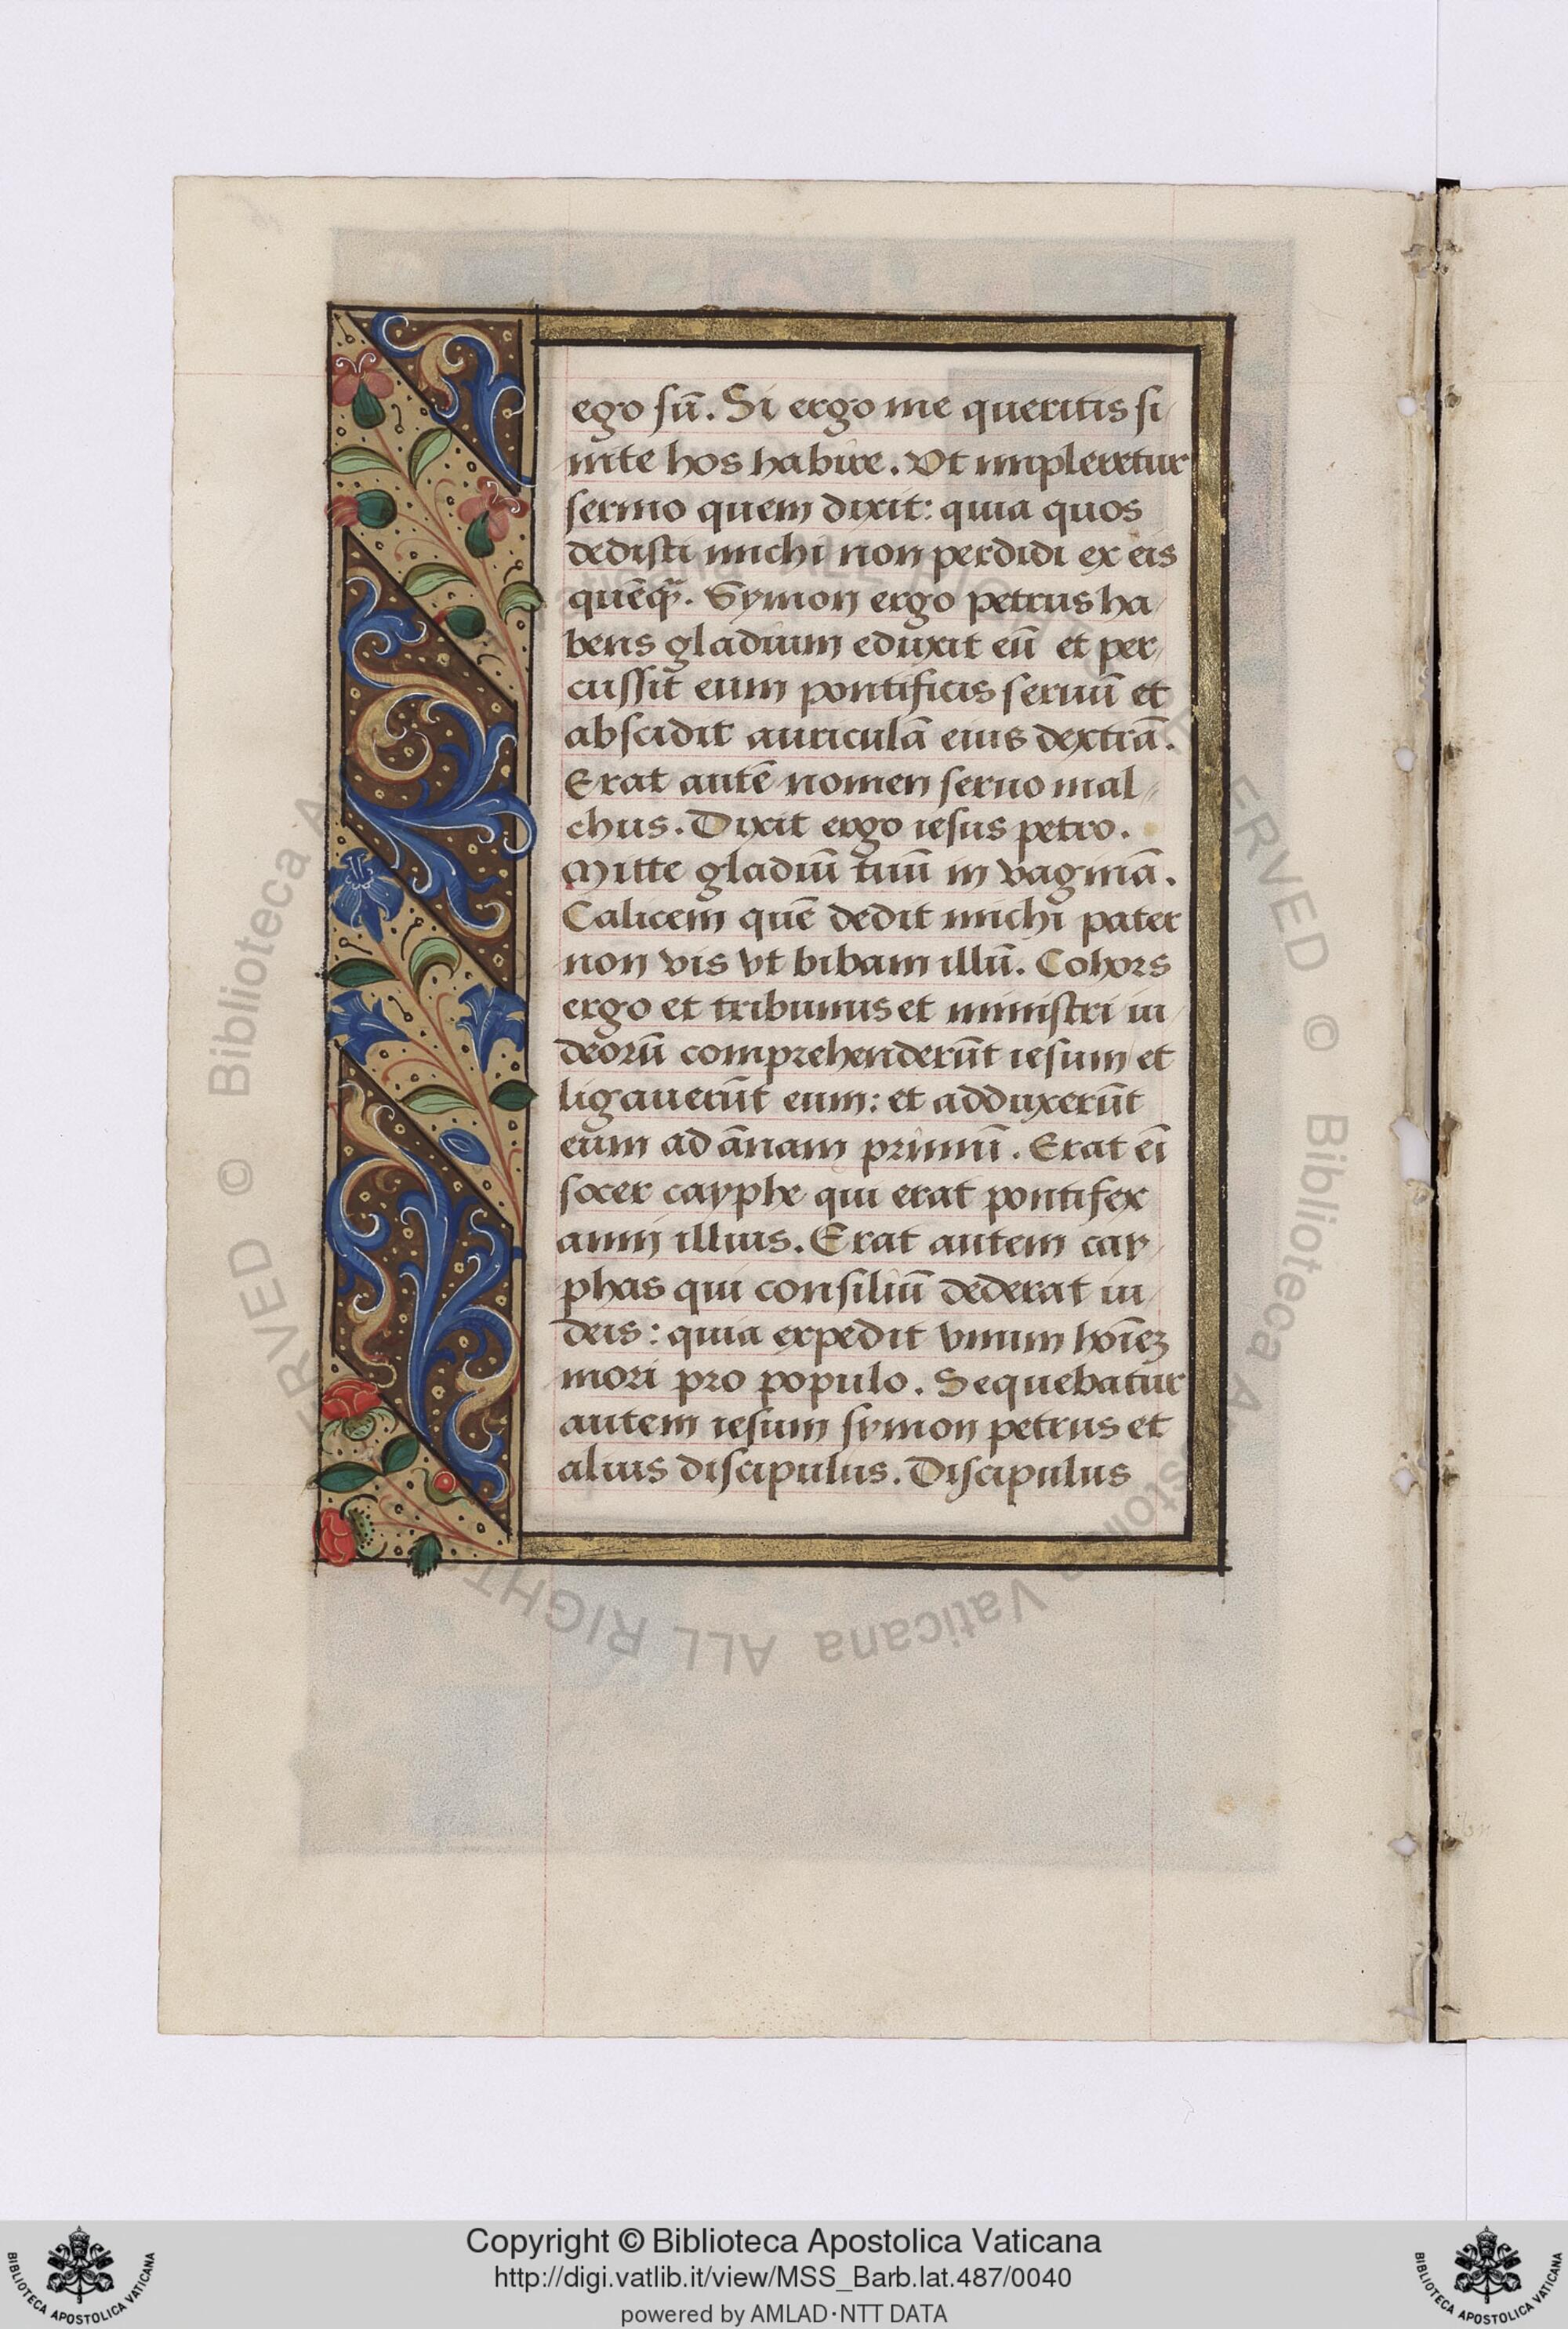 ego sū. Si ergo me queritis si
nite hos habire. Vt impleretur
sermo quem dixit: quia quos
dedisti michi non perdidi ex eis
quēq̄. Symon ergo petrus ha
bens gladium eduxit eū et per
cussit eum pontificis seruū et
abscidit auriculā eius dextrā.
Erat autē nomen seruo mal
chus. Dixit ergo iesus petro.
Mitte gladiū tuū in vaginā.
Calicem quē dedit michi pater
non vis vt bibam illū. Cohors
ergo et tribunus et ministri iu
deorū comprehenderūt iesum et
ligauerūt eum: et adduxerūt
eum ad ānam primū. Erat eī
socer cayphe qui erat pontifex
anni illius. Erat autem cay
phas qui consiliū dederat iu
deis: quia expedit vnum hoīeꝫ
mori pro populo. Sequebatur
autem iesum symon petrus et
alius discipulus. Discipulus
© Biblioteca Apostolica Vaticana ALL RIGHTS RESERVED
Copyright © Biblioteca Apostolica Vaticana
http://digi.vatlib.it/view/MSS_Barb.lat.487/0040
powered by AMLAD·NTT DATA
BIBLIOTECA APOSTOLICA VATICANA
BIBLIOTECA APOSTOLICA VATICANA